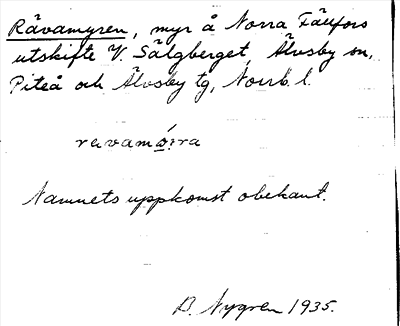 Rävamyren, myr å Norra Fällfors
utskifte V. Sälgberget, Älvsby sn,
Piteå och Älvsby tg, Norrb. l.
Namnets uppkomst obekant.
D. Nygren 1935.